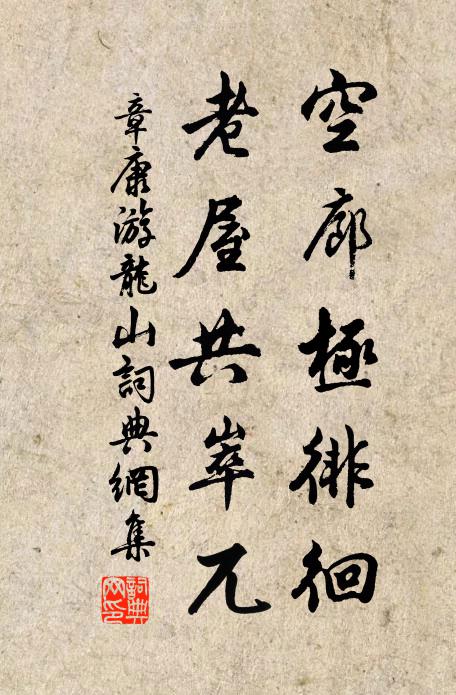 空廊極徘徊
老屋共崒兀
章康游龍山詞典網集
詞典網印